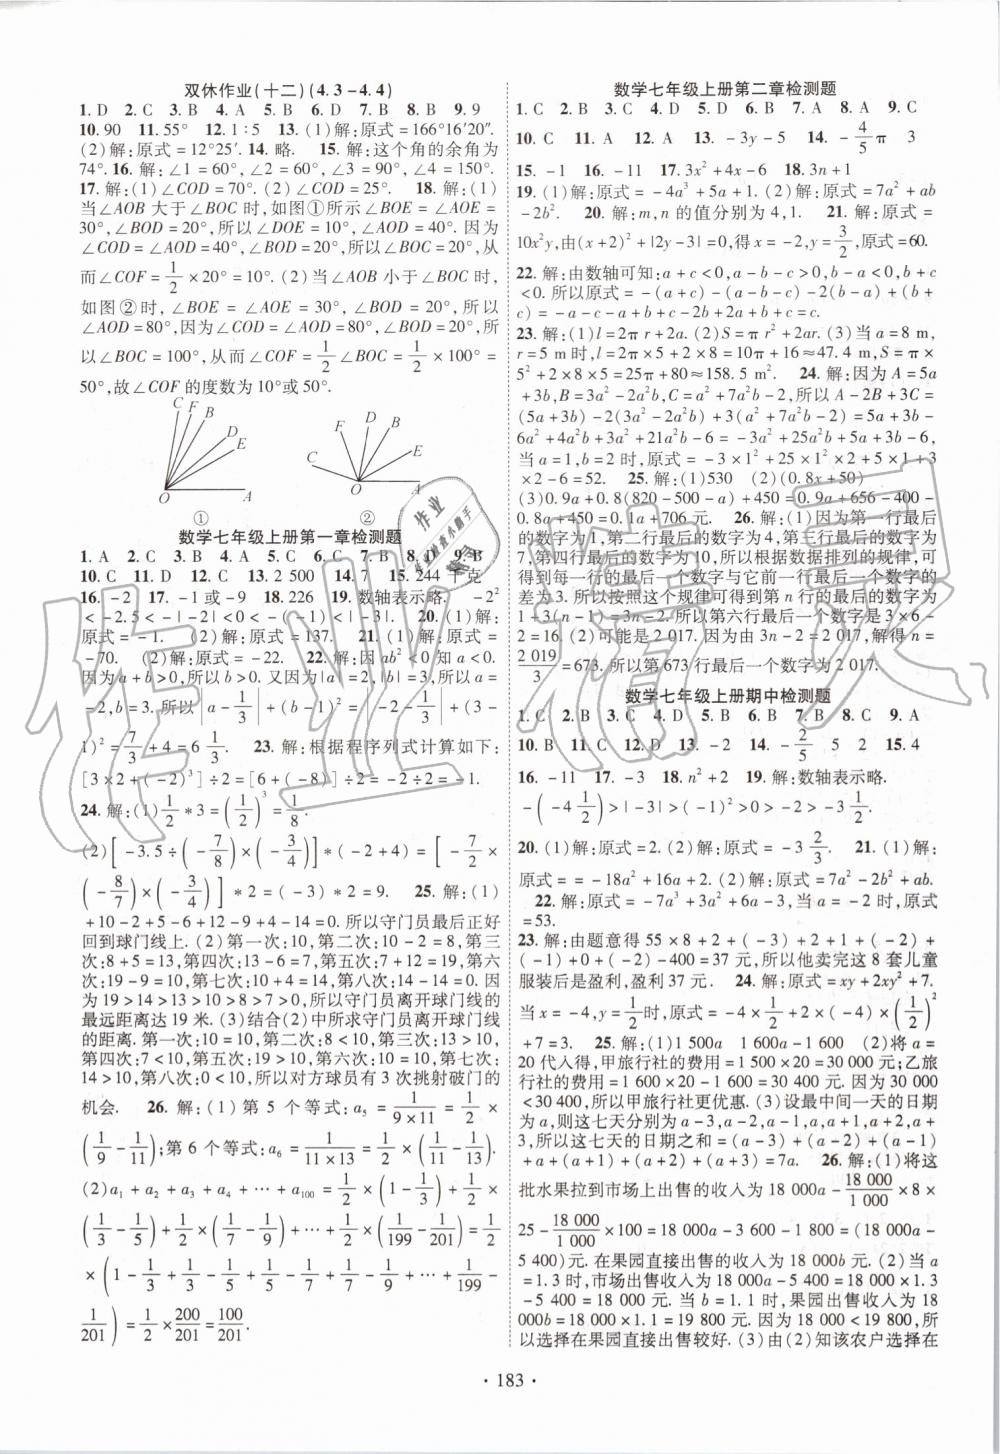 双休作业(十二)(4.3-4.4)
1. D 2. C 3. B 4. A 5. C 6. D 7. B 8. B 9. 9
10. 90 11. 55° 12. 1∶5 13. (1)解:原式=166°16′20″.
(2)解:原式=12°25′. 14. 略. 15. 解:这个角的余角为
74°. 16. 解:∠1=60°,∠2=30°,∠3=90°,∠4=150°.
17. 解:(1)∠COD=70°. (2)∠COD=25°. 18. 解:(1)
当∠AOB大于∠BOC时,如图①所示∠BOE=∠AOE=
30°,∠BOD=20°,所以∠DOE=10°,∠AOD=40°. 因为
∠COD=∠AOD=40°,∠BOD=20°,所以∠BOC=20°,从
而∠COF=1/2×20°=10°. (2)当∠AOB小于∠BOC时,
如图②时,∠BOE=∠AOE=30°,∠BOD=20°,所以
∠AOD=80°,因为∠COD=∠AOD=80°,∠BOD=20°,所
以∠BOC=100°,从而∠COF=1/2∠BOC=1/2×100°=
50°,故∠COF的度数为10°或50°.
C F B D E O A
①
D B E C O A
②
数学七年级上册第一章检测题
1. A 2. C 3. B 4. C 5. A 6. B 7. B 8. D 9. B
10. C 11. D 12. C 13. 2 500 14. 7 15. 244 千克
16. -2 17. -1或-9 18. 226 19. 数轴表示略. -2²
<-2.5<-|-2|<-(-1)<0<-(-3). 20. (1)解:
原式=-1. (2)解:原式=137. 21. (1)解:原式=
-70. (2)解:原式=-22. 22. 解:因ab²<0知a<0.
因为a+b>0,所以b>0. 又因为|a|=2,|b|=3,所以a=
-2,b=3. 所以|a-1/3|+(b-1)²=|-2-1/3|+(3-
1)²=7/3+4=6 1/3. 23. 解:根据程序列式计算如下:
[3×2+(-2)³]÷2=[6+(-8)]÷2=-2÷2=-1.
24. 解:(1)1/2*3=(1/2)³=1/8.
(2)[-3.5÷(-7/8)×(-3/4)]*(-2+4)=[-7/2×
(-8/7)×(-3/4)]*2=-3*2=9. 25. 解:(1)
+10-2+5-6+12-9+4-14=0. 所以守门员最后正好
回到球门线上. (2)第一次:10,第二次:10-2=8,第三
次:8+5=13,第四次:13-6=7,第五次:7+12=19,第六
次:19-9=10,第七次:10+4=14,第八次:14-14=0. 因
为19>14>13>10>8>7>0,所以守门员离开球门线的
最远距离达19米. (3)结合(2)中所求守门员离开球门线
的距离. 第一次:10=10,第二次:8<10,第三次:13>10,
第四次:7<10,第五次:19>10,第六次:10=10,第七次:
14>10,第八次:0<10,所以对方球员有3次挑射破门的
机会. 26. 解:(1)第5个等式:a₅=1/(9×11)=1/2×
(1/9-1/11);第6个等式:a₆=1/(11×13)=1/2×(1/11-1/13).
(2)a₁+a₂+a₃+a₄+…+a₁₀₀=1/2×(1-1/3)+1/2×
(1/3-1/5)+1/2×(1/5-1/7)+…+1/2×(1/199-1/201)=1/2
×(1-1/3+1/3-1/5+1/5-1/7+1/7-1/9+…+1/199-
1/201)=1/2×200/201=100/201.
数学七年级上册第二章检测题
1. C 2. C 3. B 4. D 5. B 6. A 7. A 8. A 9. C
10. C 11. A 12. A 13. -3y-5 14. -4/5π 3
15. -1 16. -11 17. 3x²+4x-6 18. 3n+1
19. (1)解:原式=-4a³+5a+1. (2)解:原式=7a²+ab
-2b². 20. 解:m,n的值分别为4,1. 21. 解:原式=
10x²y,由(x+2)²+|2y-3|=0,得x=-2,y=3/2,原式=60.
22. 解:由数轴可知:a+c<0,a-b-c>0,b-a<0,b+c
<0. 所以原式=-(a+c)-(a-b-c)-2(b-a)+(b+
c)=-a-c-a+b+c-2b+2a+b+c=c.
23. 解:(1)l=2πr+2a. (2)S=πr²+2ar. (3)当a=8 m,
r=5 m时,l=2π×5+2×8=10π+16≈47.4 m,S=π×
5²+2×8×5=25π+80≈158.5 m². 24. 解:因为A=5a
+3b,B=3a²-2a²b,C=a²+7a²b-2,所以A-2B+3C=
(5a+3b)-2(3a²-2a²b)+3(a²+7a²b-2)=5a+3b-
6a²+4a²b+3a²+21a²b-6=-3a²+25a²b+5a+3b-6.
当a=1,b=2时,原式=-3×1²+25×1²×2+5×1+3
×2-6=52. 25. 解:(1)530 (2)(0.8x+50)
(3)0.9a+0.8(820-500-a)+450=0.9a+656-400-
0.8a+450=0.1a+706元. 26. 解:(1)因为第一行最后
的数字为1,第二行最后的数字为4,第三行最后的数字为
7,第四行最后的数字为10,根据数据排列的规律,可
得到每一行的最后一个数字与前一行的最后一个数字的
差为3,所以按照这个规律可得到第n行的最后的数字为
1+3(n-1)=3n-2. 所以第六行最后一个数字为3×6
-2=16. (2)可能是2 017. 因为由3n-2=2 017,解得n=
2 019/3=673. 所以第673行最后一个数字为2 017.
数学七年级上册期中检测题
1. C 2. B 3. C 4. D 5. B 6. B 7. B 8. C 9. A
10. B 11. C 12. D 13. -2 14. -2/5 5 2 15. 4
16. -11 17. -3 18. n²+2 19. 解:数轴表示略.
-(-4 1/2)>|-3|>(-1)²>0>-2>-3 1/2.
20. (1)解:原式=2. (2)解:原式=-3 2/3. 21. (1)解:
原式==-18a²+16a+2. (2)解:原式=7a²-2b²+ab.
22. 解:原式=-7a³+3a²+6a-3,当a=-2时,原式
=53.
23. 解:由题意得55×8+2+(-3)+2+1+(-2)+
(-1)+0+(-2)-400=37元,所以他卖完这8套儿童
服装后是盈利,盈利37元. 24. 解:原式=xy+2xy²+7.
当x=-4,y=1/2时,原式=-4×1/2+2×(-4)×(1/2)²
+7=3. 25. 解:(1)1 500a 1 600a-1 600 (2)将a=
20代入得,甲旅行社的费用=1 500×20=30 000元;乙旅
行社的费用=1 600×20-1 600=30 400元. 因为30 000
<30 400元,所以甲旅行社更优惠. (3)设最中间一天的日期
为a,则这七天分别为a-3,a-2,a-1,a,a+1,a+2,a+
3,所以这七天的日期之和=(a-3)+(a-2)+(a-1)
+a+(a+1)+(a+2)+(a+3)=7a. 26. 解:(1)将这
批水果拉到市场上出售的收入为18 000a-18 000/1 000×8×
25-18 000/1 000×100=18 000a-3 600-1 800=(18 000a-
5 400)元. 在果园直接出售的收入为18 000b元. (2)当a
=1.3时,市场出售收入为18 000a-5 400=18 000×1.3
-5 400=18 000元. 当b=1.1时,果园出售收入为18
000b=18 000×1.1=19 800元. 因为18 000<19 800,所
以选择在果园直接出售较好. (3)由(2)知该农户选择在
·183·